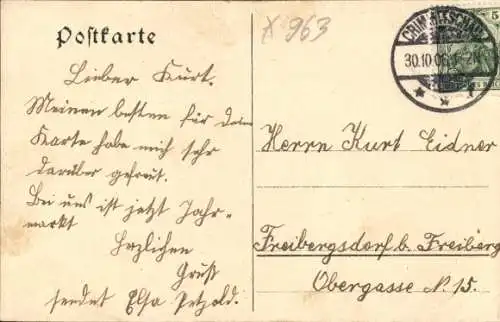 Postkarte
x 963
CRIMMITSCHAU
30.10.06
5
Lieber Kurt.
Meinen besten für deine
Karte habe mich sehr
darüber gefreut.
Bei uns ist jetzt Jahr-
markt
Herzlichen
Gruß
sendet Elsa Petzold.
Herrn Kurt Eidner
Freibergsdorf b. Freiberg
Obergasse N. 15.